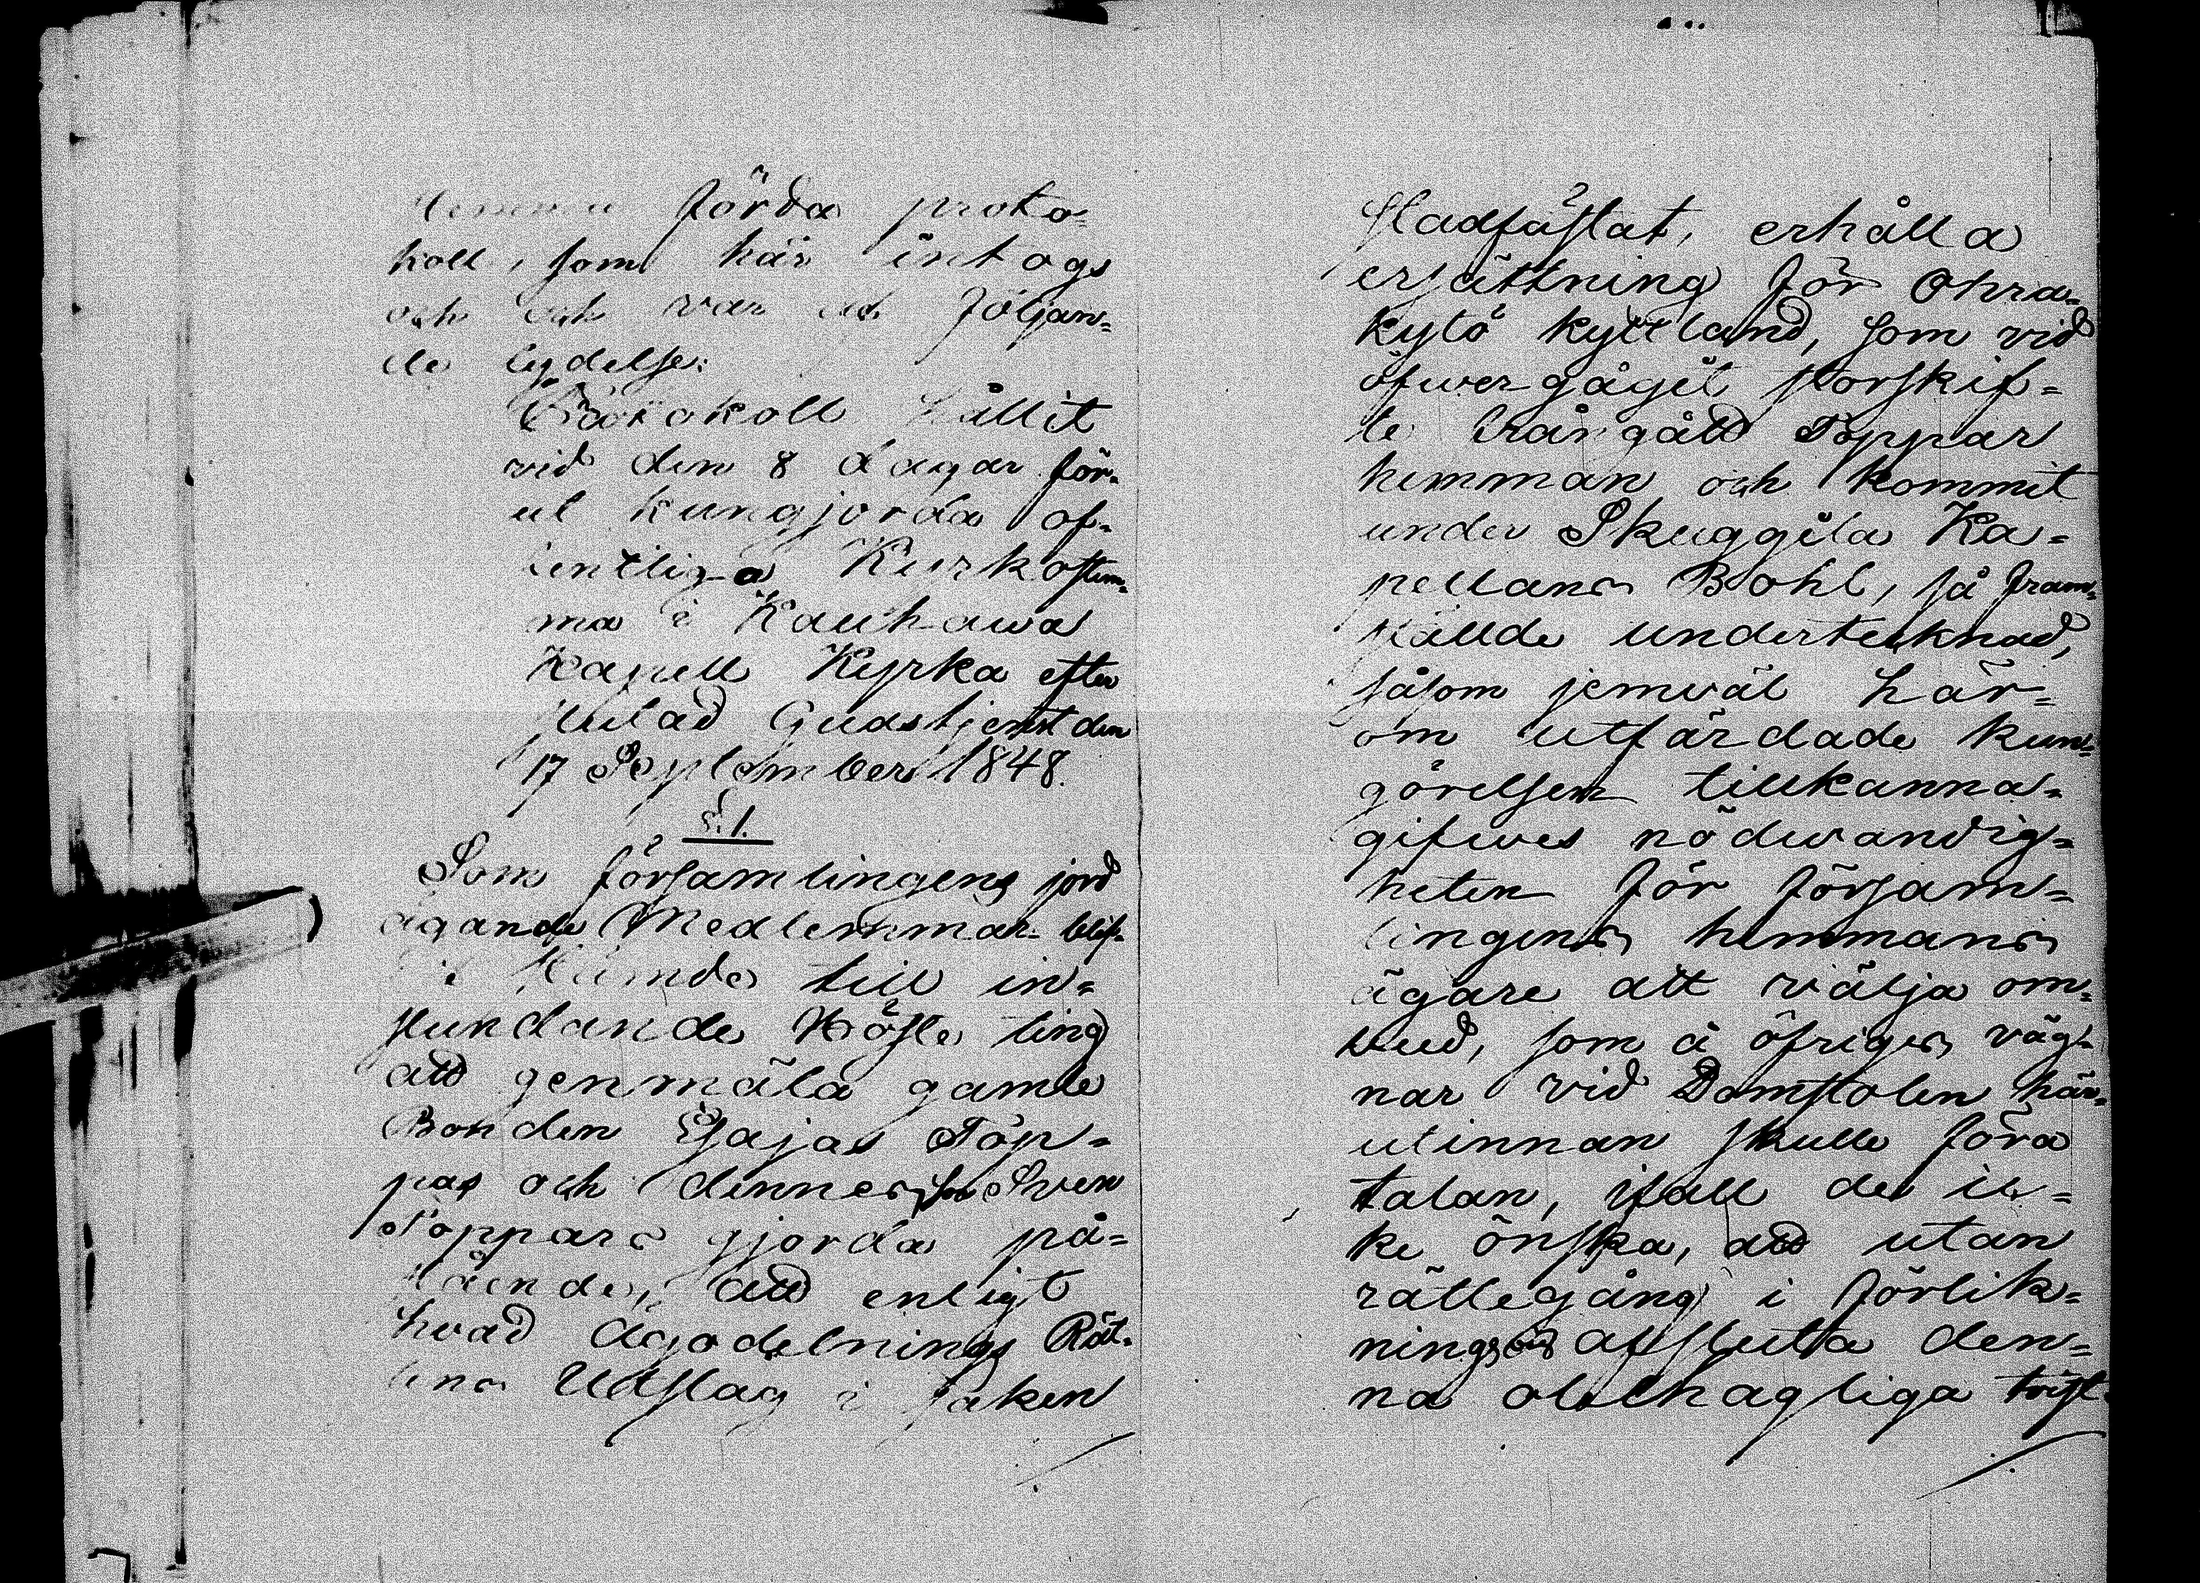 förda proto-
koll, som här intogs
och var af följan-
de lydelse:
Protokoll hållit
vid den 8 dagar för-
ut kungjorda of-
fentliga Kyrkostäm-
ma i Kauhawa
Kapell Kyrka efter
slutad Gudstjenst den
17 September 1848.
§. 1.
Som församlingens jord
ägande Medlemmar blif-
vit stämde till in-
stundande Höste ting
att genmäla gamle
Bonden Esajas Töp-
pas och dennes Son Sven
Töppars gjorda på-
stående, att enligt
hvad Ägodelnings Rät-
tens Utslag i saken
stadfästat, erhålla
ersättning för Ohra-
kytö kyttland, som vid
öfwergågit storskif-
te frångått Töppar
hemman och kommit
under Skuggila Ka-
pellans Bohl, så fram-
stälde undertecknad,
såsom jemväl här-
om utfärdade kun-
görelsen tillkanna-
gifwes nödwandig-
heten för försam-
lingens hemmans
ägare att välja om-
bud, som å öfriges väg-
nar vid Domstolen här-
utinnan skulle föra
talan, ifall de ic-
ke önska, att utan
rättegång i förlik-
ningsväg afsluta den-
na obehagliga tvist.